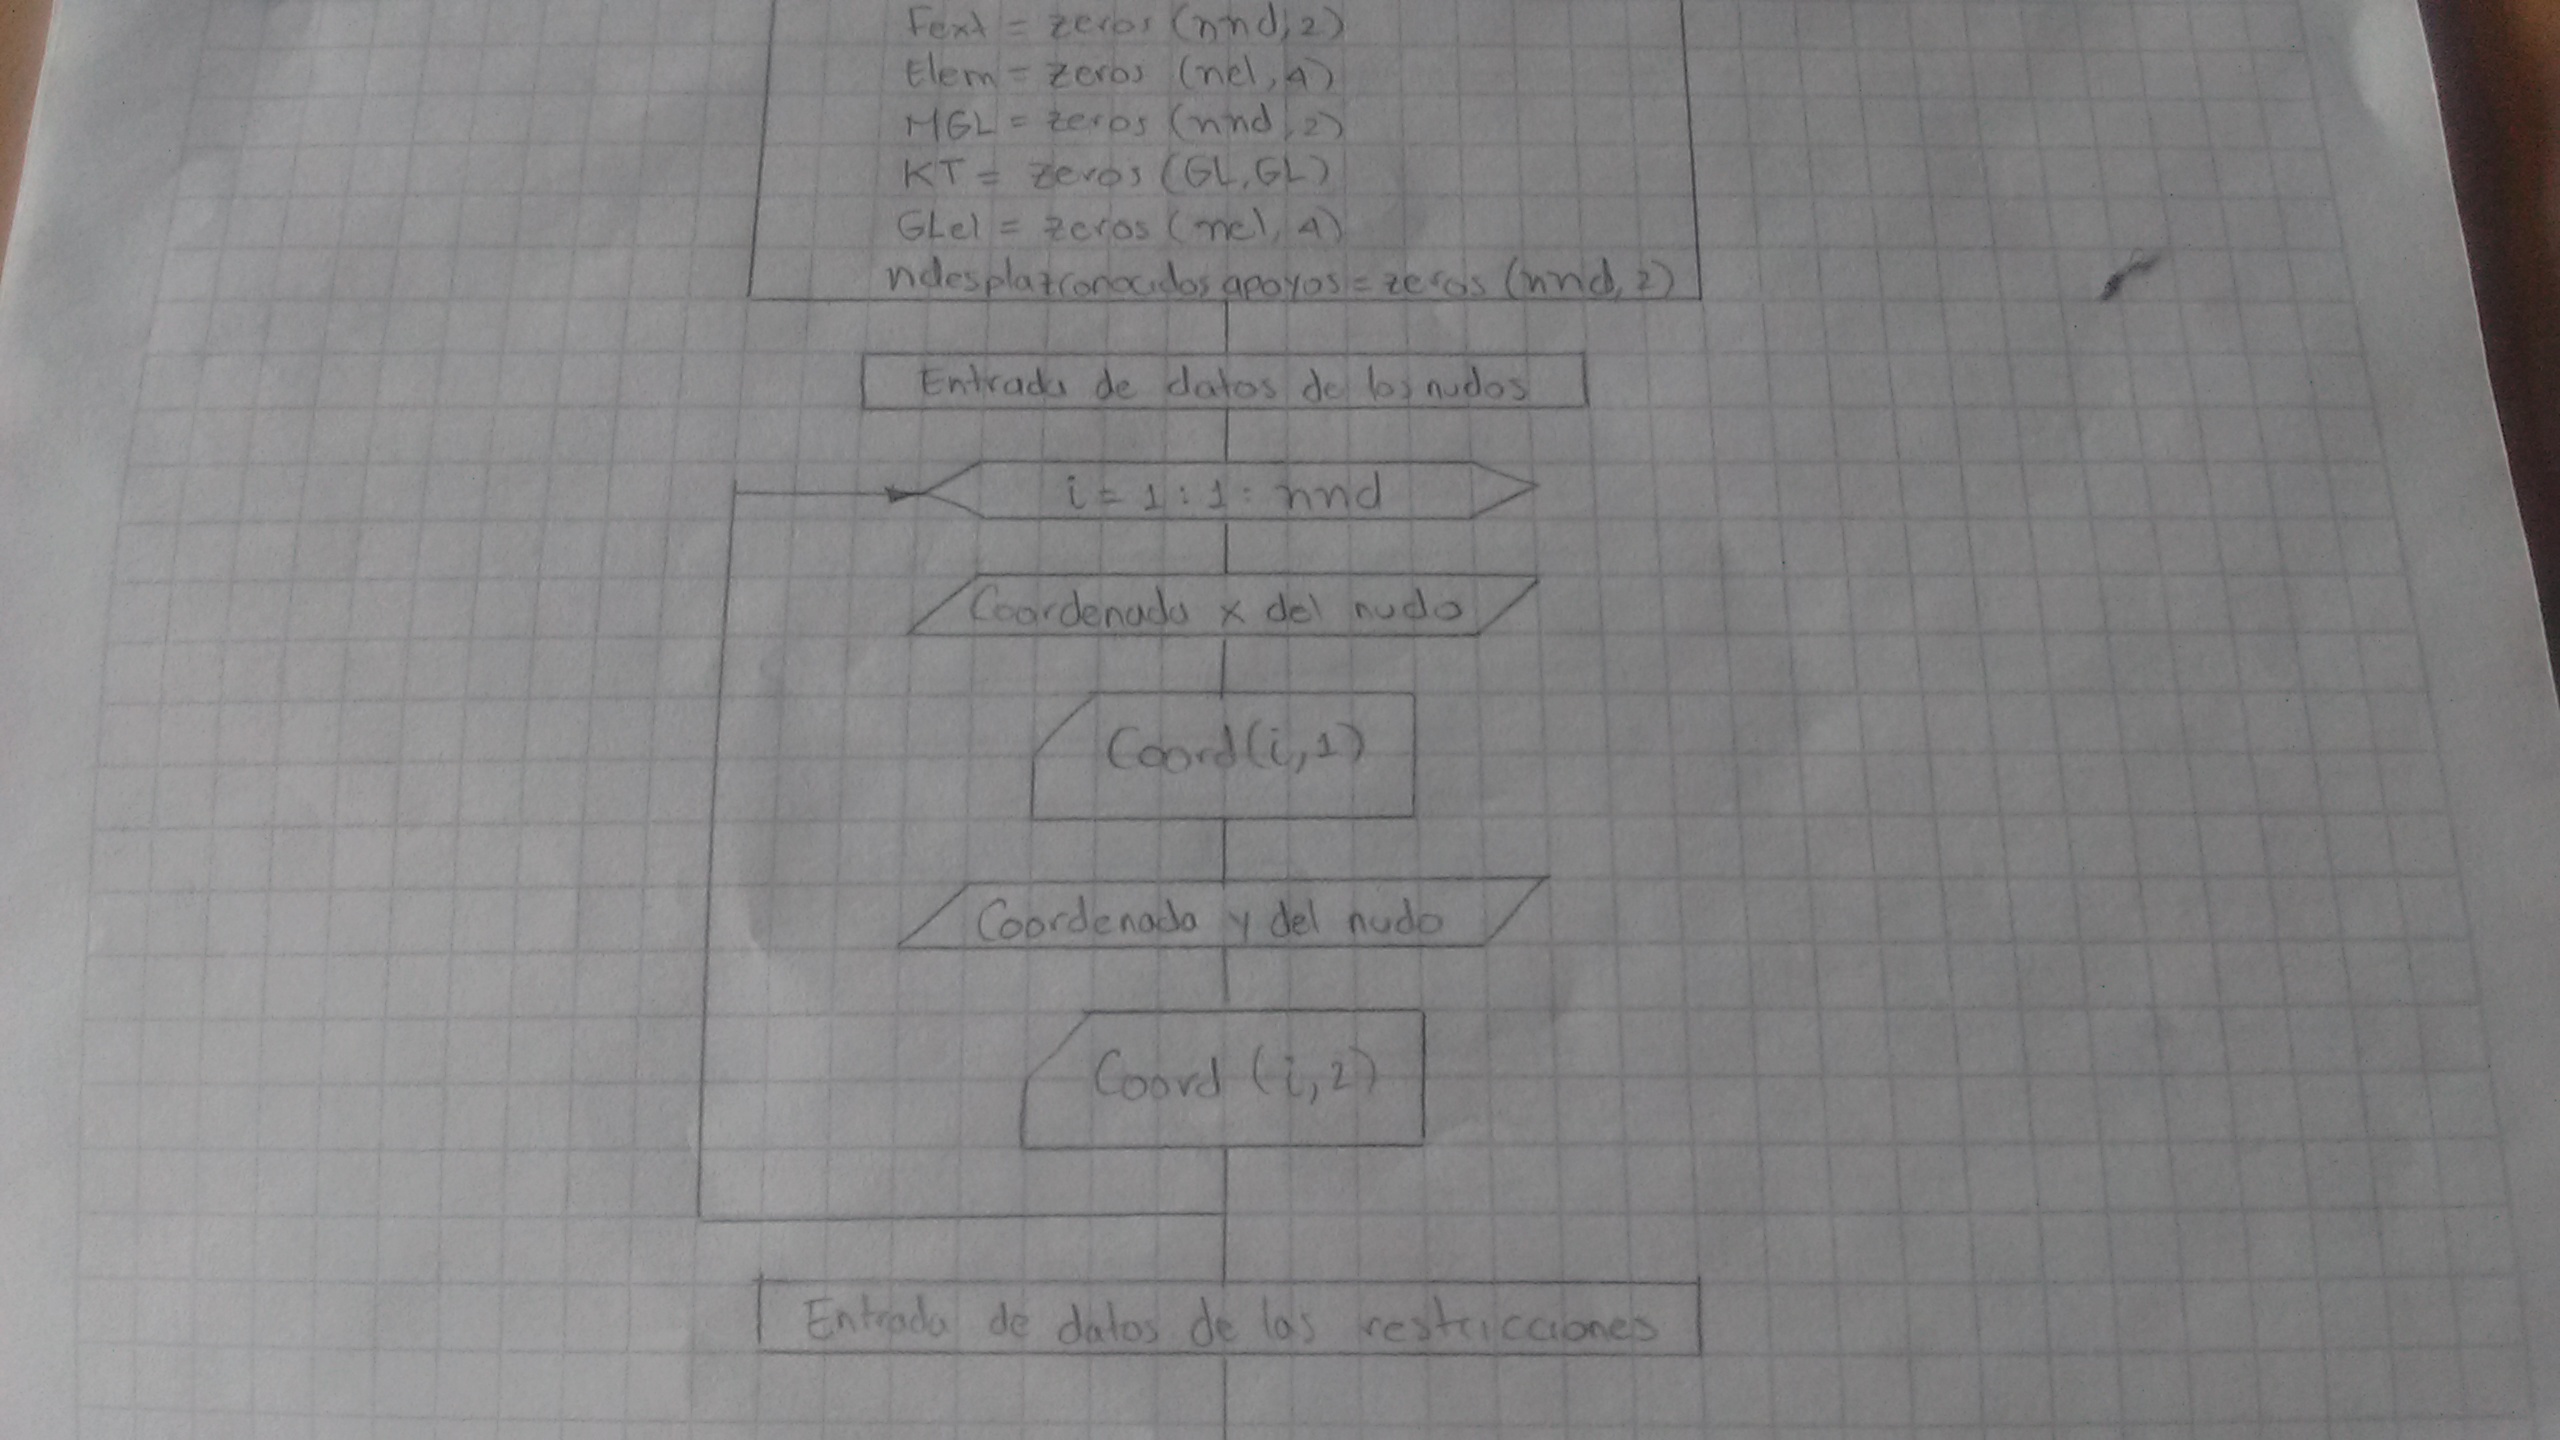 Fext = zeros (nnd, 2)
Elem = zeros (nel, 4)
MGL = zeros (nnd, 2)
KT = zeros (GL, GL)
GLel = zeros (nel, 4)
ndesplazconocidosapoyos = zeros (nnd, 2)
Entrada de datos de los nudos
i = 1 : 1 : nnd
Coordenada x del nudo
Coord(i,1)
Coordenada y del nudo
Coord (i,2)
Entrada de datos de las restricciones